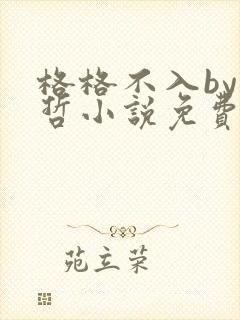 格格不入by
哲小説免費
苑立荣